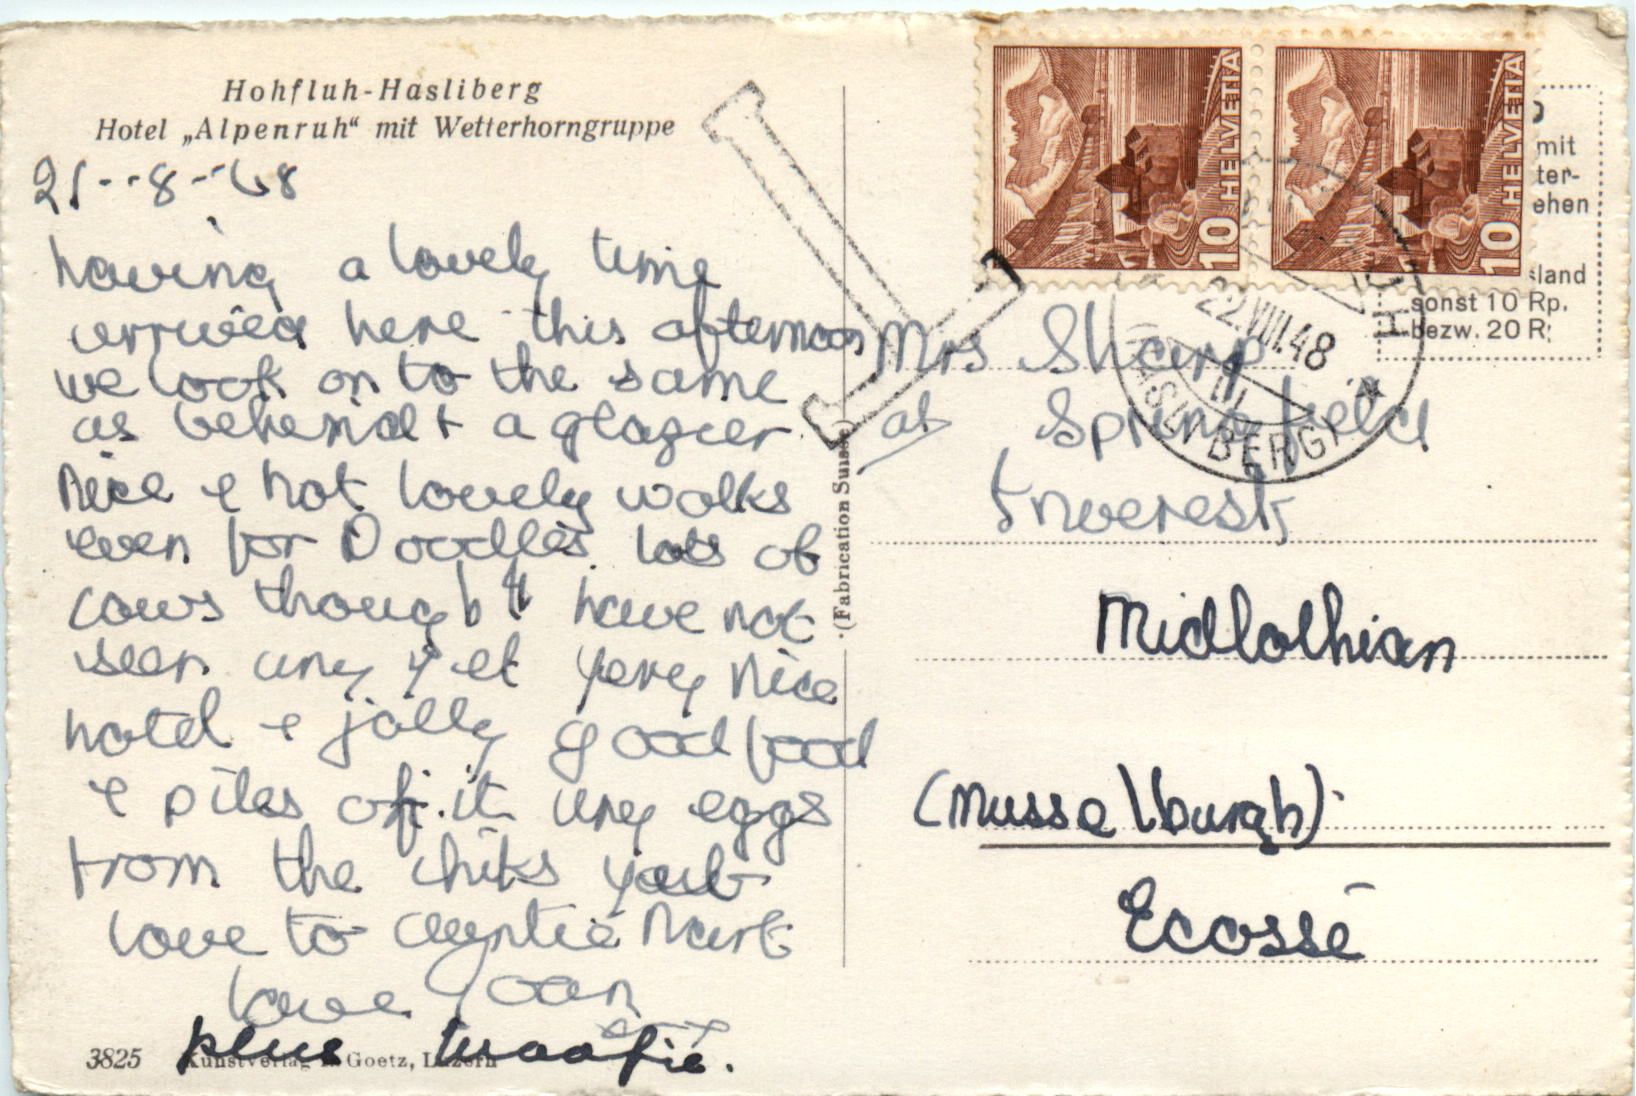 Hohfluh-Hasliberg
Hotel „Alpenruh“ mit Wetterhorngruppe
21--8--48
having a lovely time
arrived here this afternoon
we look on to the same
as behind + a glazier
nice & hot lovely walks
even for Doodles. lots of
cows though have not
seen any yet very nice
hotel & jolly good food
& piles of it any eggs
from the chiks
love to Auntie
love Joan
plus
3825 Kunstverlag Goetz, Luzern
(Fabrication Suisse)
HELVETIA 10
HELVETIA 10
mit
ter-
ehen
sland
sonst 10 Rp.
bezw. 20 R
22.VIII.48
Mrs Sharp
at Springfield
Inveresk
Midlothian
(Musselburgh)
Ecosse